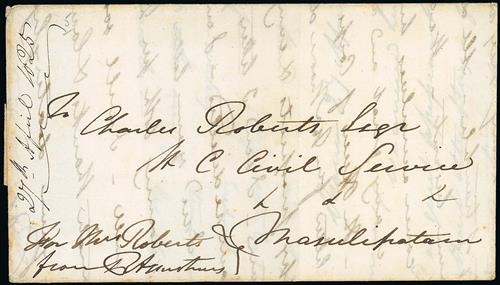 27th April 1825
To
Charles Roberts Esqr
H C Civil Service
& & &
Masulipatam
For Mrs Roberts
from